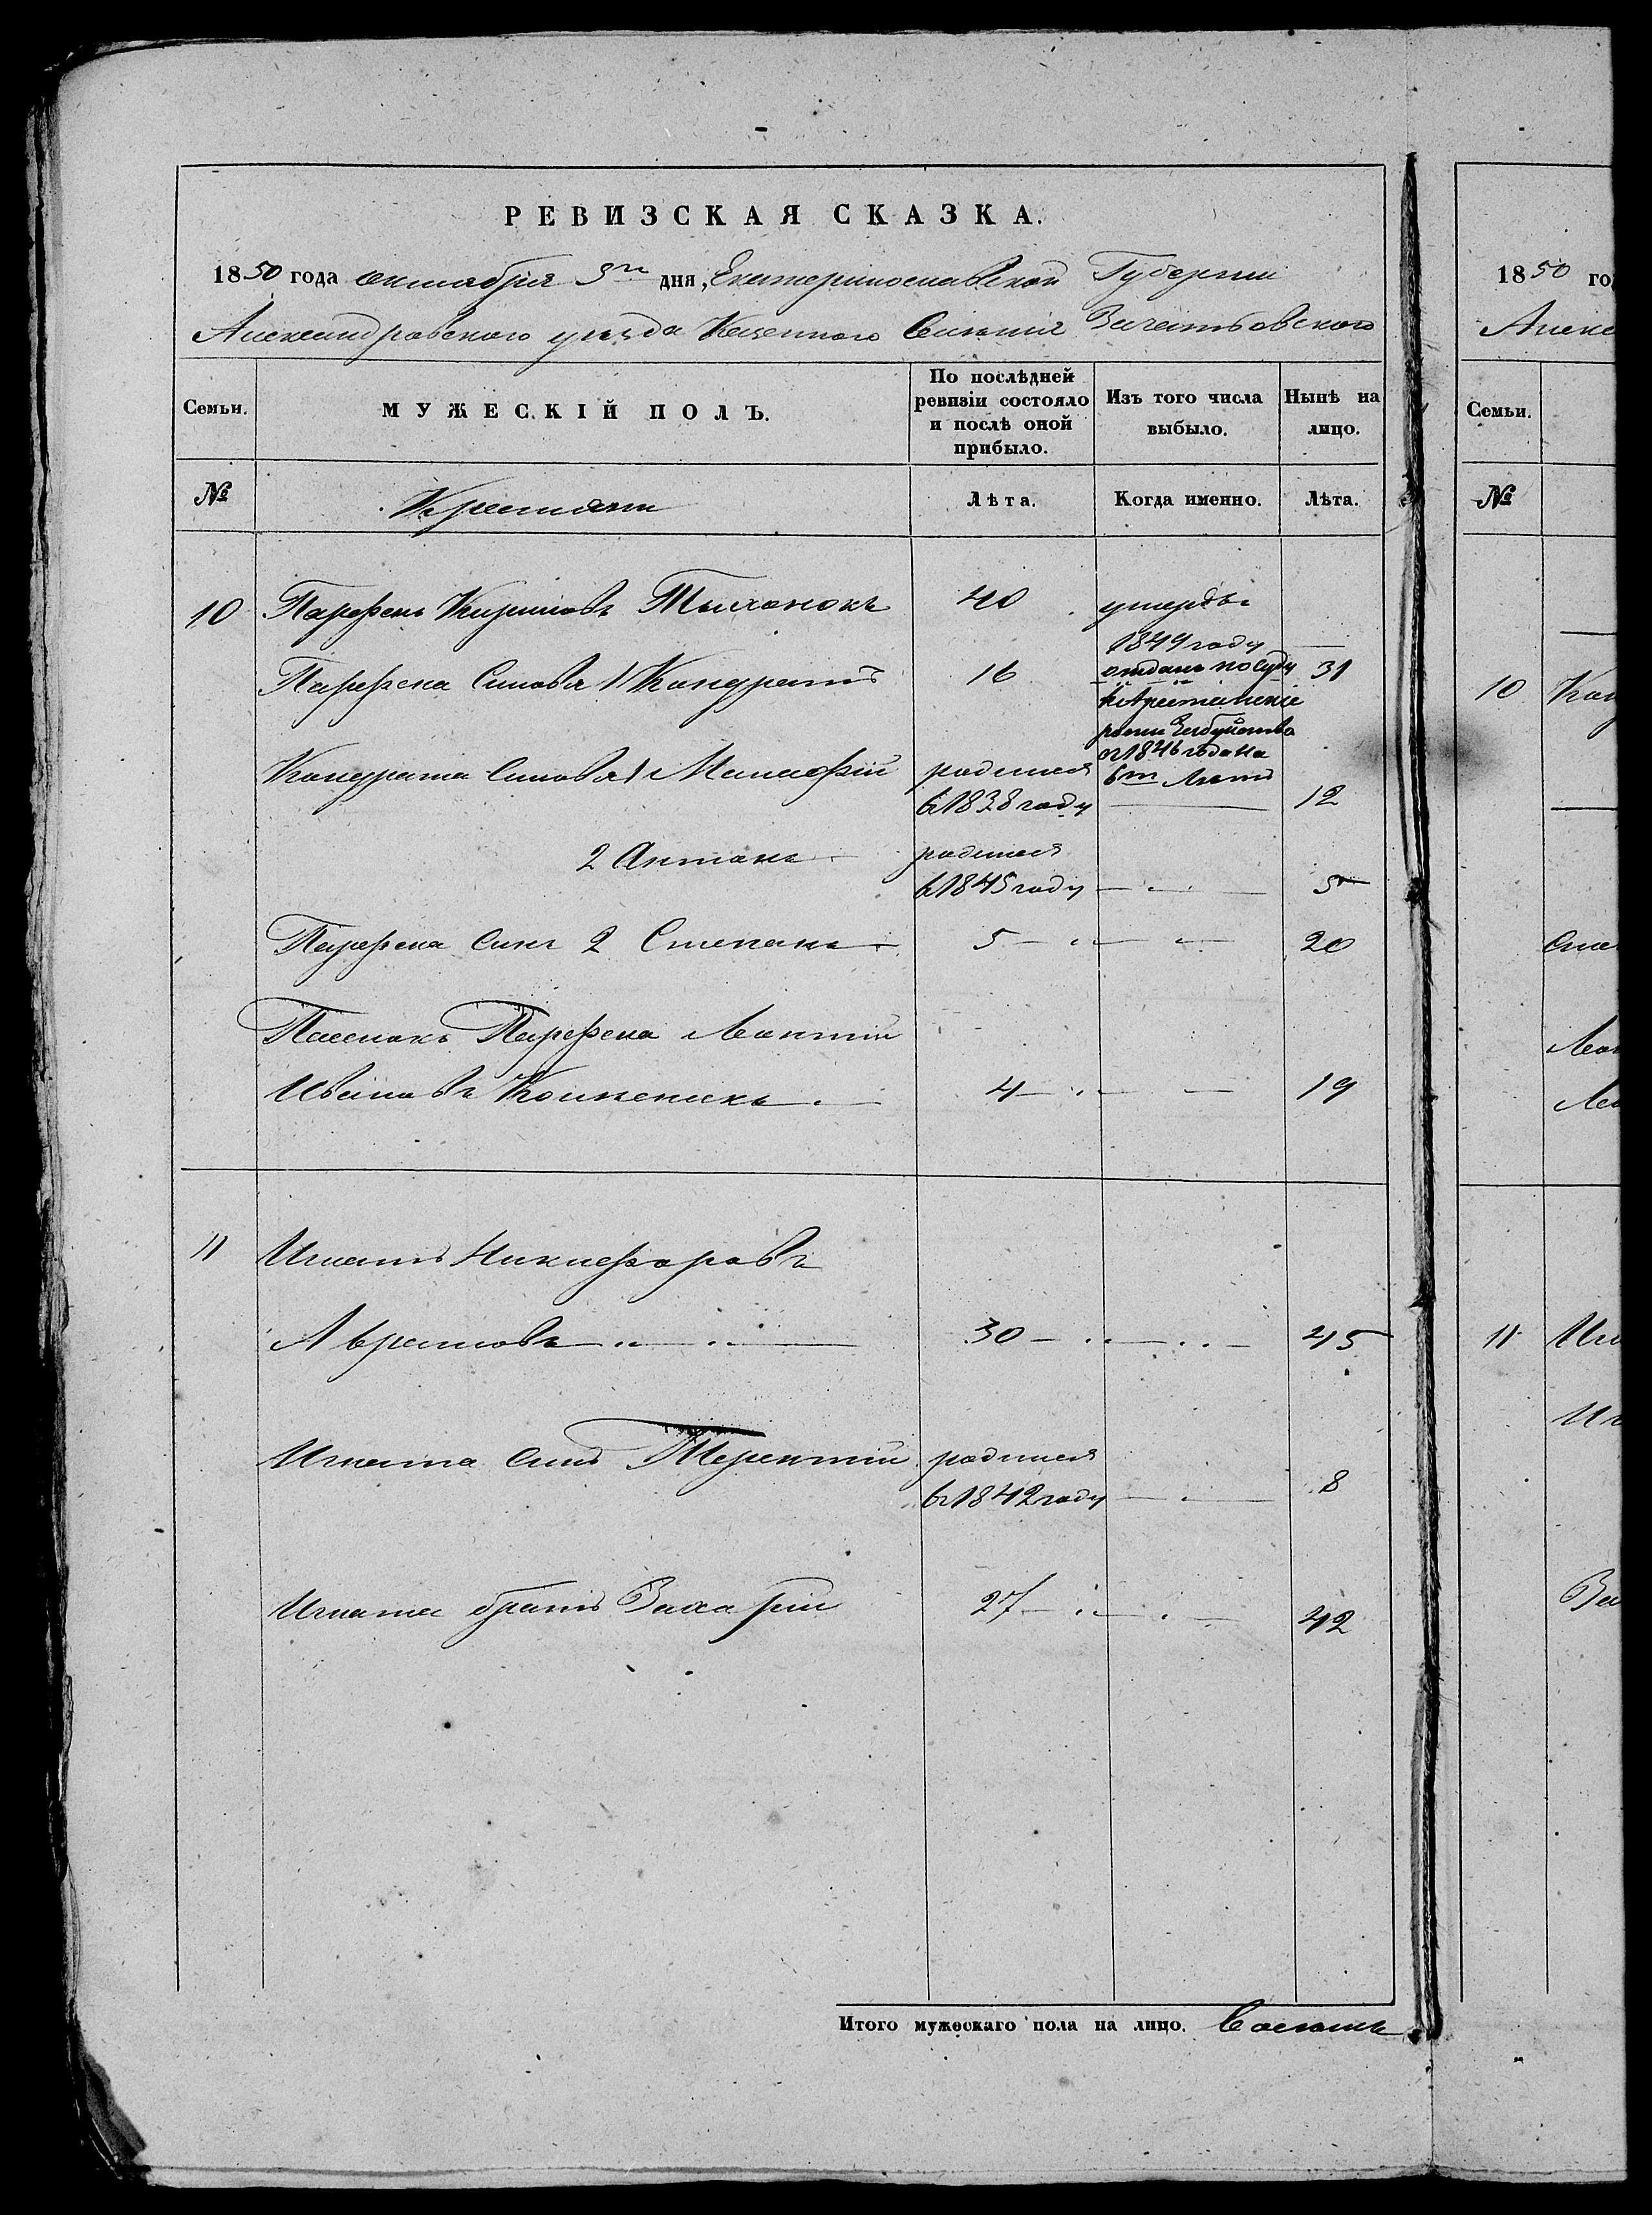 РЕВИЗСКАЯ СКАЗКА.
1850 года октября 3го дня, Екатеринославской Губернии
Александровского уезда Казенного Селения Зачатьовского
Семьи.
МУЖЕСКІЙ ПОЛЪ.
По послѣдней ревизіи состояло и послѣ оной прибыло.
Изъ того числа выбыло.
Нынѣ на лицо.
№
Крестьяне
Лѣта.
Когда именно.
Лѣта.
10 Парфенъ Кириловъ 40 умеръ въ
1849 году
Парфена Сыновья 1 Кондратъ 16 отданъ по суду 31
въ Арестанские
роты
съ 1846 года на
6ть Лѣтъ
Кондрата Сыновья 1 родился
в 1838 году 12
2 Антонъ родился
в 1845 году 5
Парфена Сынъ 2 Степанъ 5 20
Пасынокъ Парфена Леонтий
Ивановъ 4 19
11 Игнатъ Никифоровъ
Аврамовъ 30 45
Игната Сынъ Терентий родился
в 1842 году 8
Игната братъ Захарий 27 42
Итого мужескаго пола на лицо. Восемь
1850 го
Алекс
Семьи.
№
10 Кон
Сте
Лео
11 Игн
Иг
За